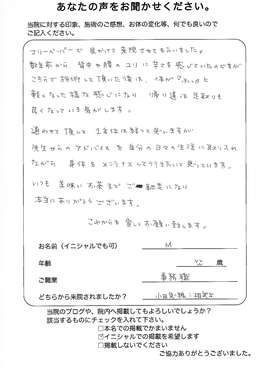 あなたの声をお聞かせください。
当院に対する印象、施術のご感想、お体の変化等、何でも良いので
ご記入ください。
フリーペーパーで見かけて来院させてもらいました。
数年前から、背中や腰のコリに辛さを感じていたのですが
こちらで施術して頂いた後は、体が
軽くなった様な感じになり、帰り道は足取りも
良くなっている気がします。
通わせて頂いて1年以上経つと思いますが
先生からのアドバイスを自分の日々の生活に取り入れ
ながら 身体をメンテナンスして行きたいと思っています。
いつも美味しいお茶までご馳走になり
本当にありがとうございます。
これからも宜しくお願い致します。
お名前(イニシャルでも可) M
年齢 歳
ご職業 事務職
どちらから来院されましたか?
当院のブログや、院内へ掲載してもよろしいでしょうか?
該当するものにチェックを入れて下さい。
□本名での掲載でかまいません
☑イニシャルでの掲載を希望します
□掲載しないでください
ご協力ありがとうございました。